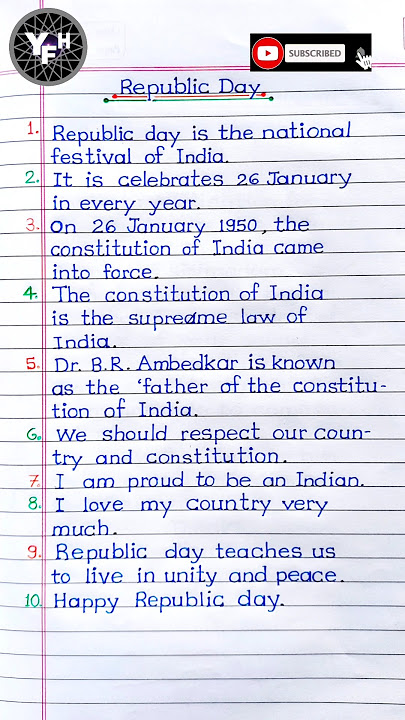 Y H
F
SUBSCRIBED
Republic Day
1. Republic day is the national
festival of India.
2. It is celebrates 26 January
in every year.
3. On 26 January 1950, the
constitution of India came
into force.
4. The constitution of India
is the supreame law of
India.
5. Dr. B.R. Ambedkar is known
as the 'father of the constitu-
tion of India.
6. We should respect our coun-
try and constitution.
7. I am proud to be an Indian.
8. I love my country very
much.
9. Republic day teaches us
to live in unity and peace.
10. Happy Republic day.